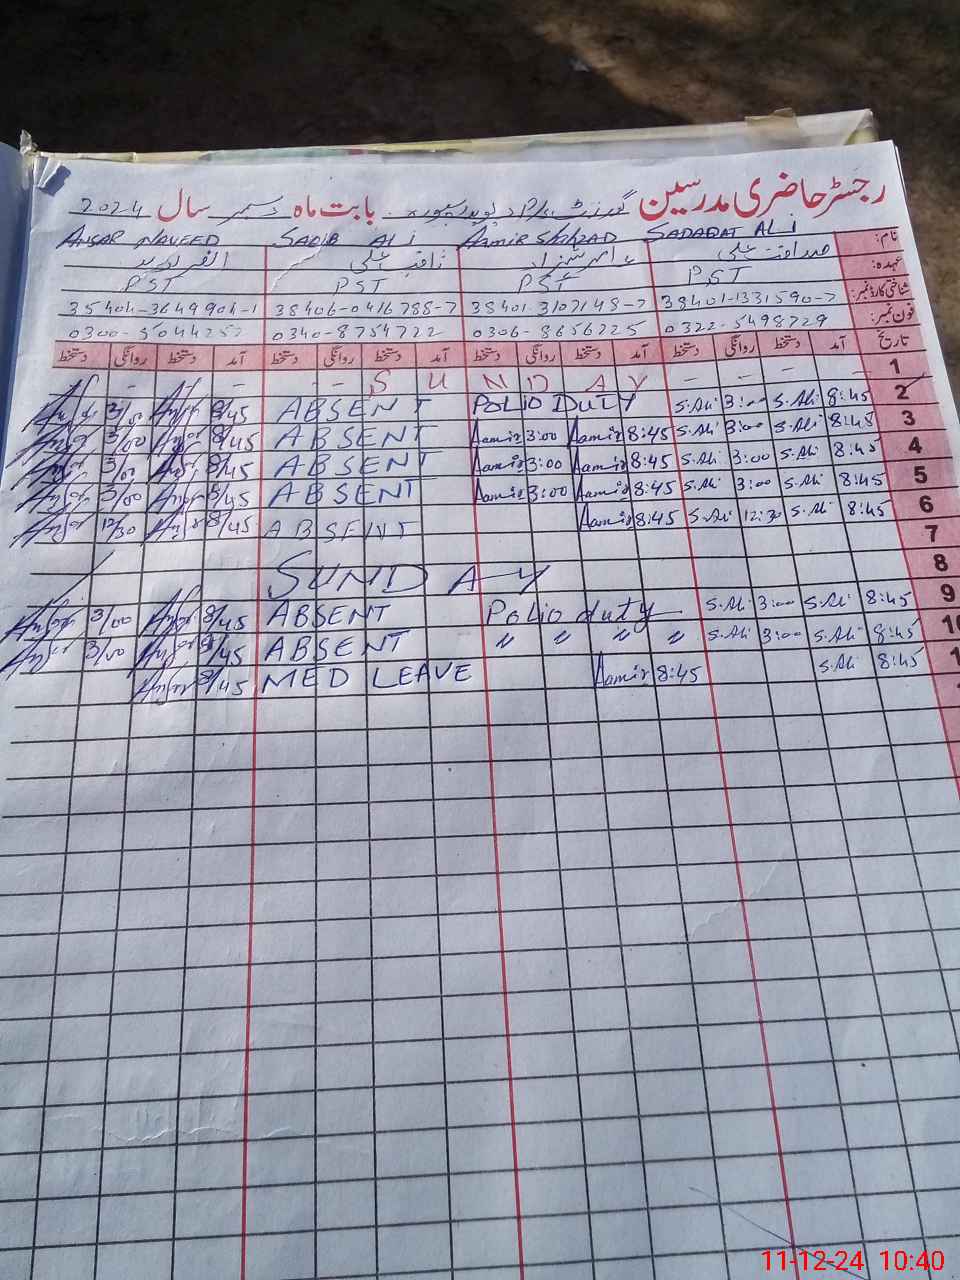 رجسٹر حاضری مدرسین گورنمنٹ بابت ماہ دسمبر سال 2024
نام: SADAQAT ALI Aamir Shahzad SAQIB ALI ANSAR NAVEED
صداقت علی عامر شہزاد ثاقب علی
عہدہ: PST PST PST PST
شناختی کارڈ نمبر: 38401-1331590-7 38401-3107148-7 38406-0416788-7 35404-3649904-1
فون نمبر: 0322-5498729 0306-8656225 0340-8754722
تاریخ آمد دستخط روانگی دستخط آمد دستخط روانگی دستخط آمد دستخط روانگی دستخط آمد دستخط روانگی دستخط
1 – – – – S U N D A Y – – – –
2 8:45 S.Ali 3:00 S.Ali POLIO DUTY ABSENT 8/45 Ansar 3/00 Ansar
3 8:45 S.Ali 3:00 S.Ali 8:45 Aamir 3:00 Aamir ABSENT 8/45 Ansar 3/00 Ansar
4 8:45 S.Ali 3:00 S.Ali 8:45 Aamir 3:00 Aamir ABSENT 8/45 Ansar 3/00 Ansar
5 8:45 S.Ali 3:00 S.Ali 8:45 Aamir 3:00 Aamir ABSENT 8/45 Ansar 3/00 Ansar
6 8:45 S.Ali 12:30 S.Ali 8:45 Aamir ABSENT 8/45 Ansar 12/30 Ansar
7
8 SUNDAY
9 8:45 S.Ali 3:00 S.Ali Polio duty ABSENT 8/45 Ansar 3/00 Ansar
10 8:45 S.Ali 3:00 S.Ali " " " " ABSENT 8/45 Ansar 3/00 Ansar
1 8:45 S.Ali 8:45 Aamir MED LEAVE 8/45 Ansar
11-12-24 10:40